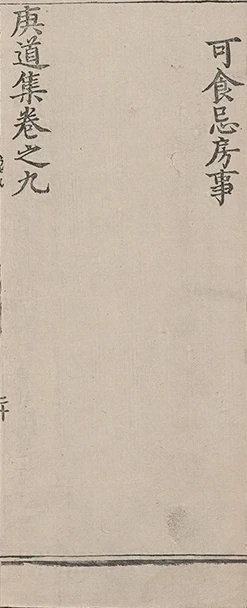 可食忌房事
庚道集卷之九
二十